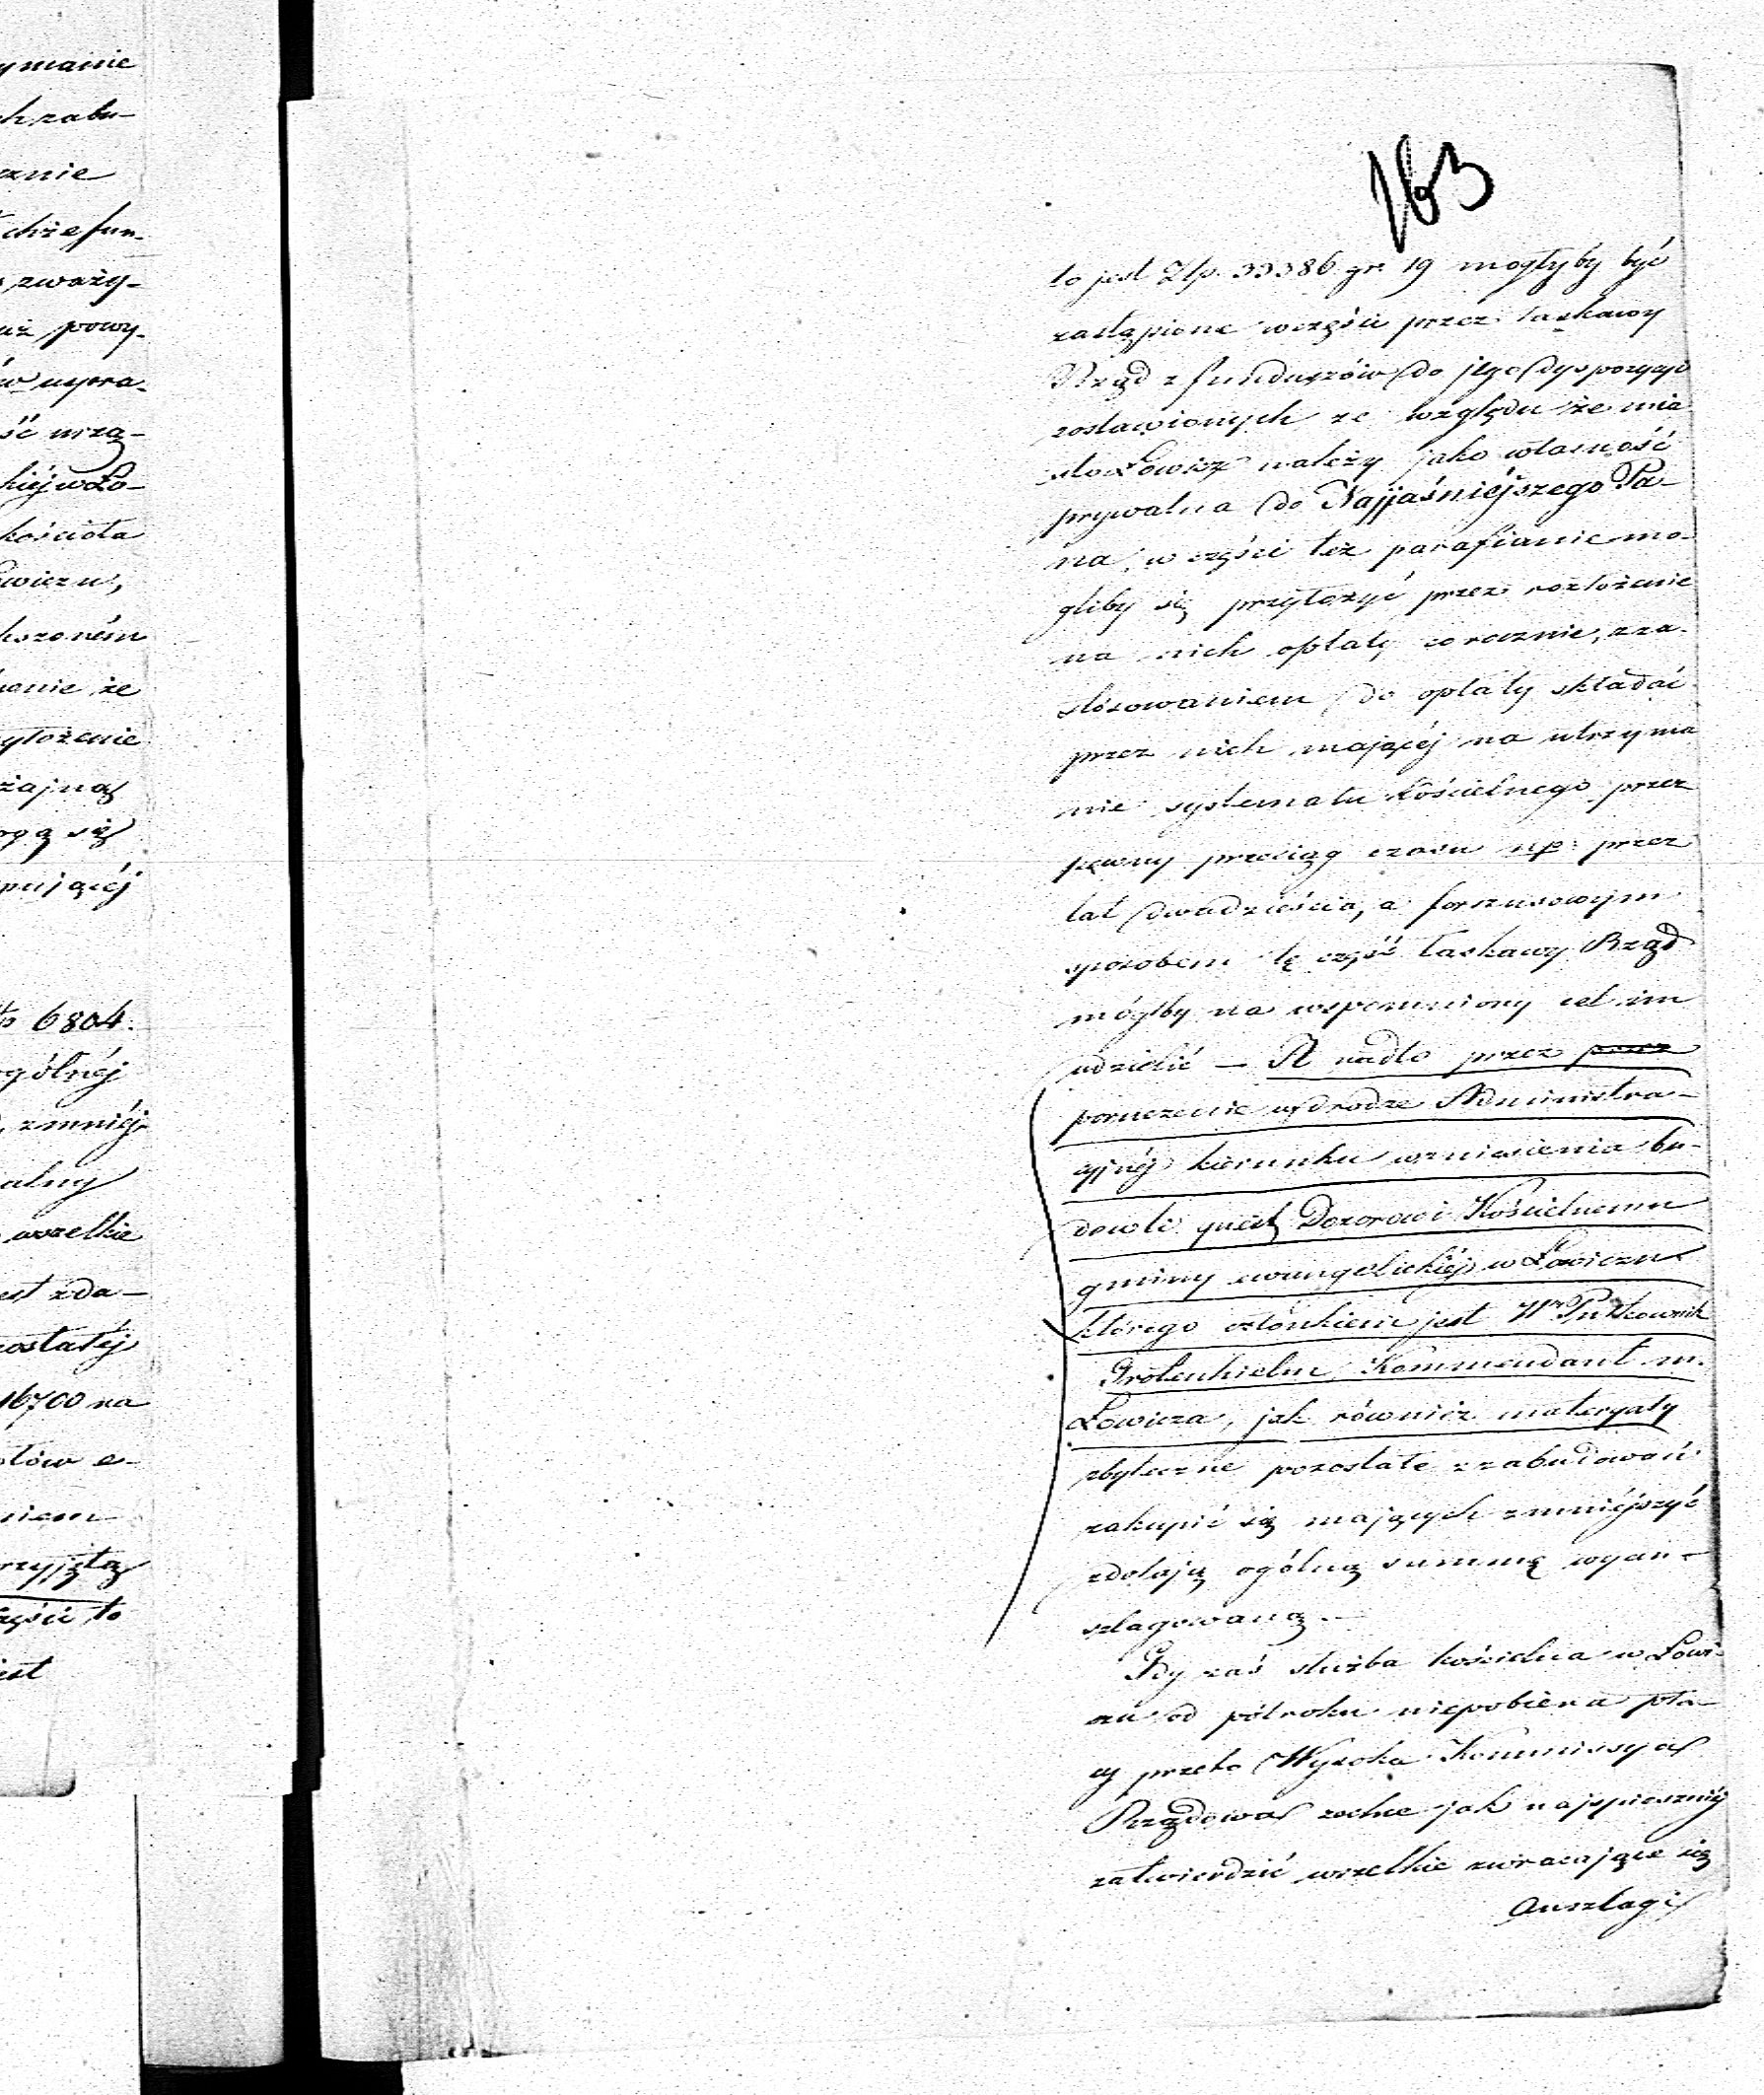 ymanie
ch zabu-
cznie
chże fun-
zważy-
uż powy-
ów wypra-
ść urzą-
kiéj w Ło-
kościoła
owiczu,
kszoném
anie że
yłożenie
żajną
ogą się
pującéj
6804.
gólnéj
zmniéj-
alny
wszelkie
est zda-
ostałéj
16700 na
otów e-
niem
rzyjętą
części to
jest
163
to jest Złp. 33386 gr. 19 mogłyby być
zastąpione w części przez łaskawy
Rząd z funduszów do jego dyspozycyi
zostawionych ze względu że mia
sto Łowicz należy jako własność
prywatna do Najjaśniéjszego Pa-
na, w części też parafianie mo-
gliby się przyłożyć przez rozłożenie
na nich opłaty corocznie, zza-
stósowaniem do opłaty składać
przez nich mającéj na utrzyma
nie systematu kościelnego przez
pewny przeciąg czasu np: przez
lat dwadzieścia, a forszusowym
sposobem tę część łaskawy Rząd
mógłby na wspomniony cel im
udzielić — A nadto przez przez
poruczenie w drodze Administra-
cyjnéj kierunku wzniesienia bu-
dowli quest: Dozorowi Kościelnemu
gminy ewangelickiéj w Łowiczu
którego członkiem jest Wny Pułkownik
Grotenhielm Kommendant m.
Łowicza, jak również materyały
zbyteczne pozostałe z zabudowań
zakupić się mających zmniéjszyć
zdołają ogólną summę wyan-
szlagowaną.—
Gdy zaś służba kościelna w Łowi-
czu od półroku niepobiera pła-
cy przeto Wysoka Kommissya
Rządowa zechce jak najspieszniéj
zatwierdzić wszelkie zwracające się
Anszlagi